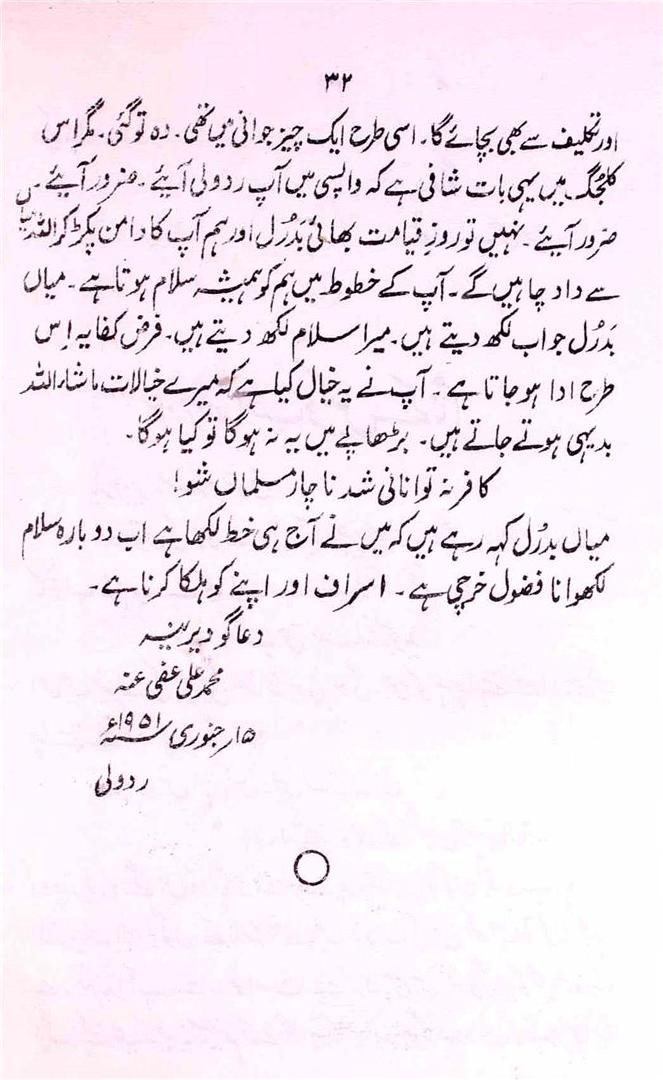 ۳۲
اور تکلیف سے بھی بچائے گا۔ اسی طرح ایک چیز جوانی میں تھی۔ وہ تو گئی۔ مگر اِس
کلجُگ میں یہی بات شافی ہے کہ واپسی میں آپ ردولی آیئے۔ ضرور آیئے۔
ضرور آیئے۔ نہیں تو روزِ قیامت بھائی بَدرُل اور ہم آپ کا دامن پکڑ کر اللہ میاں
سے داد چاہیں گے۔ آپ کے خطوط میں ہم کو ہمیشہ سلام ہوتا ہے۔ میاں
بَدرُل جواب لکھ دیتے ہیں۔ میرا سلام لکھ دیتے ہیں۔ فرض کفایہ اِس
طرح ادا ہو جاتا ہے۔ آپ نے یہ خیال کیا ہے کہ میرے خیالات ماشاء اللہ
بدیہی ہوتے جاتے ہیں۔ بڑھاپے میں یہ نہ ہوگا تو کیا ہوگا۔
کافر نہ توانانی شد ناچار مسلماں شو!
میاں بدرُل کہہ رہے ہیں کہ میں نے آج ہی خط لکھا ہے اب دوبارہ سلام
لکھوانا فضول خرچی ہے۔ اسراف اور اپنے کو ہلکا کرنا ہے۔
دعاگو دیرینہ
محمد علی عفی عنہ
۱۵؍ جنوری ۱۹۵۱ء
ردولی